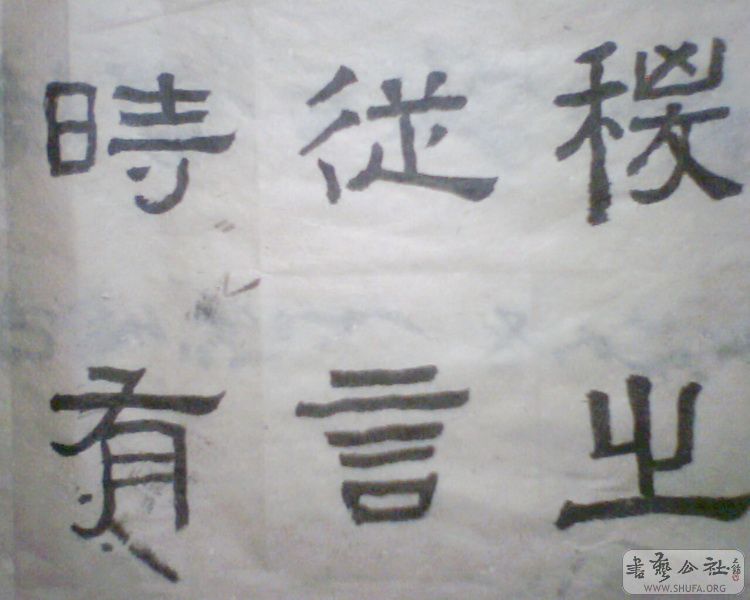 稷之
從言
時有
書藝公社
WWW.SHUFA.ORG